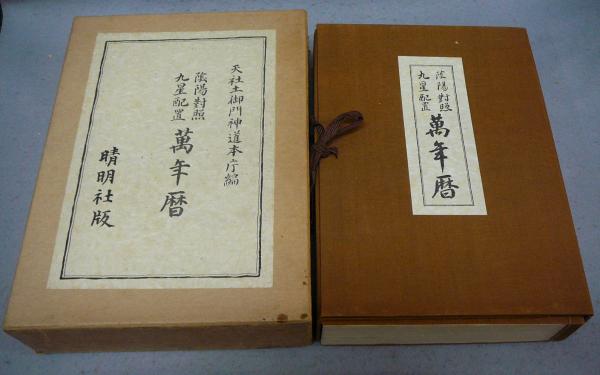 天社土御門神道本庁編
陰陽對照
九星配置
萬年暦
晴明社版
陰陽對照
九星配置
萬年暦